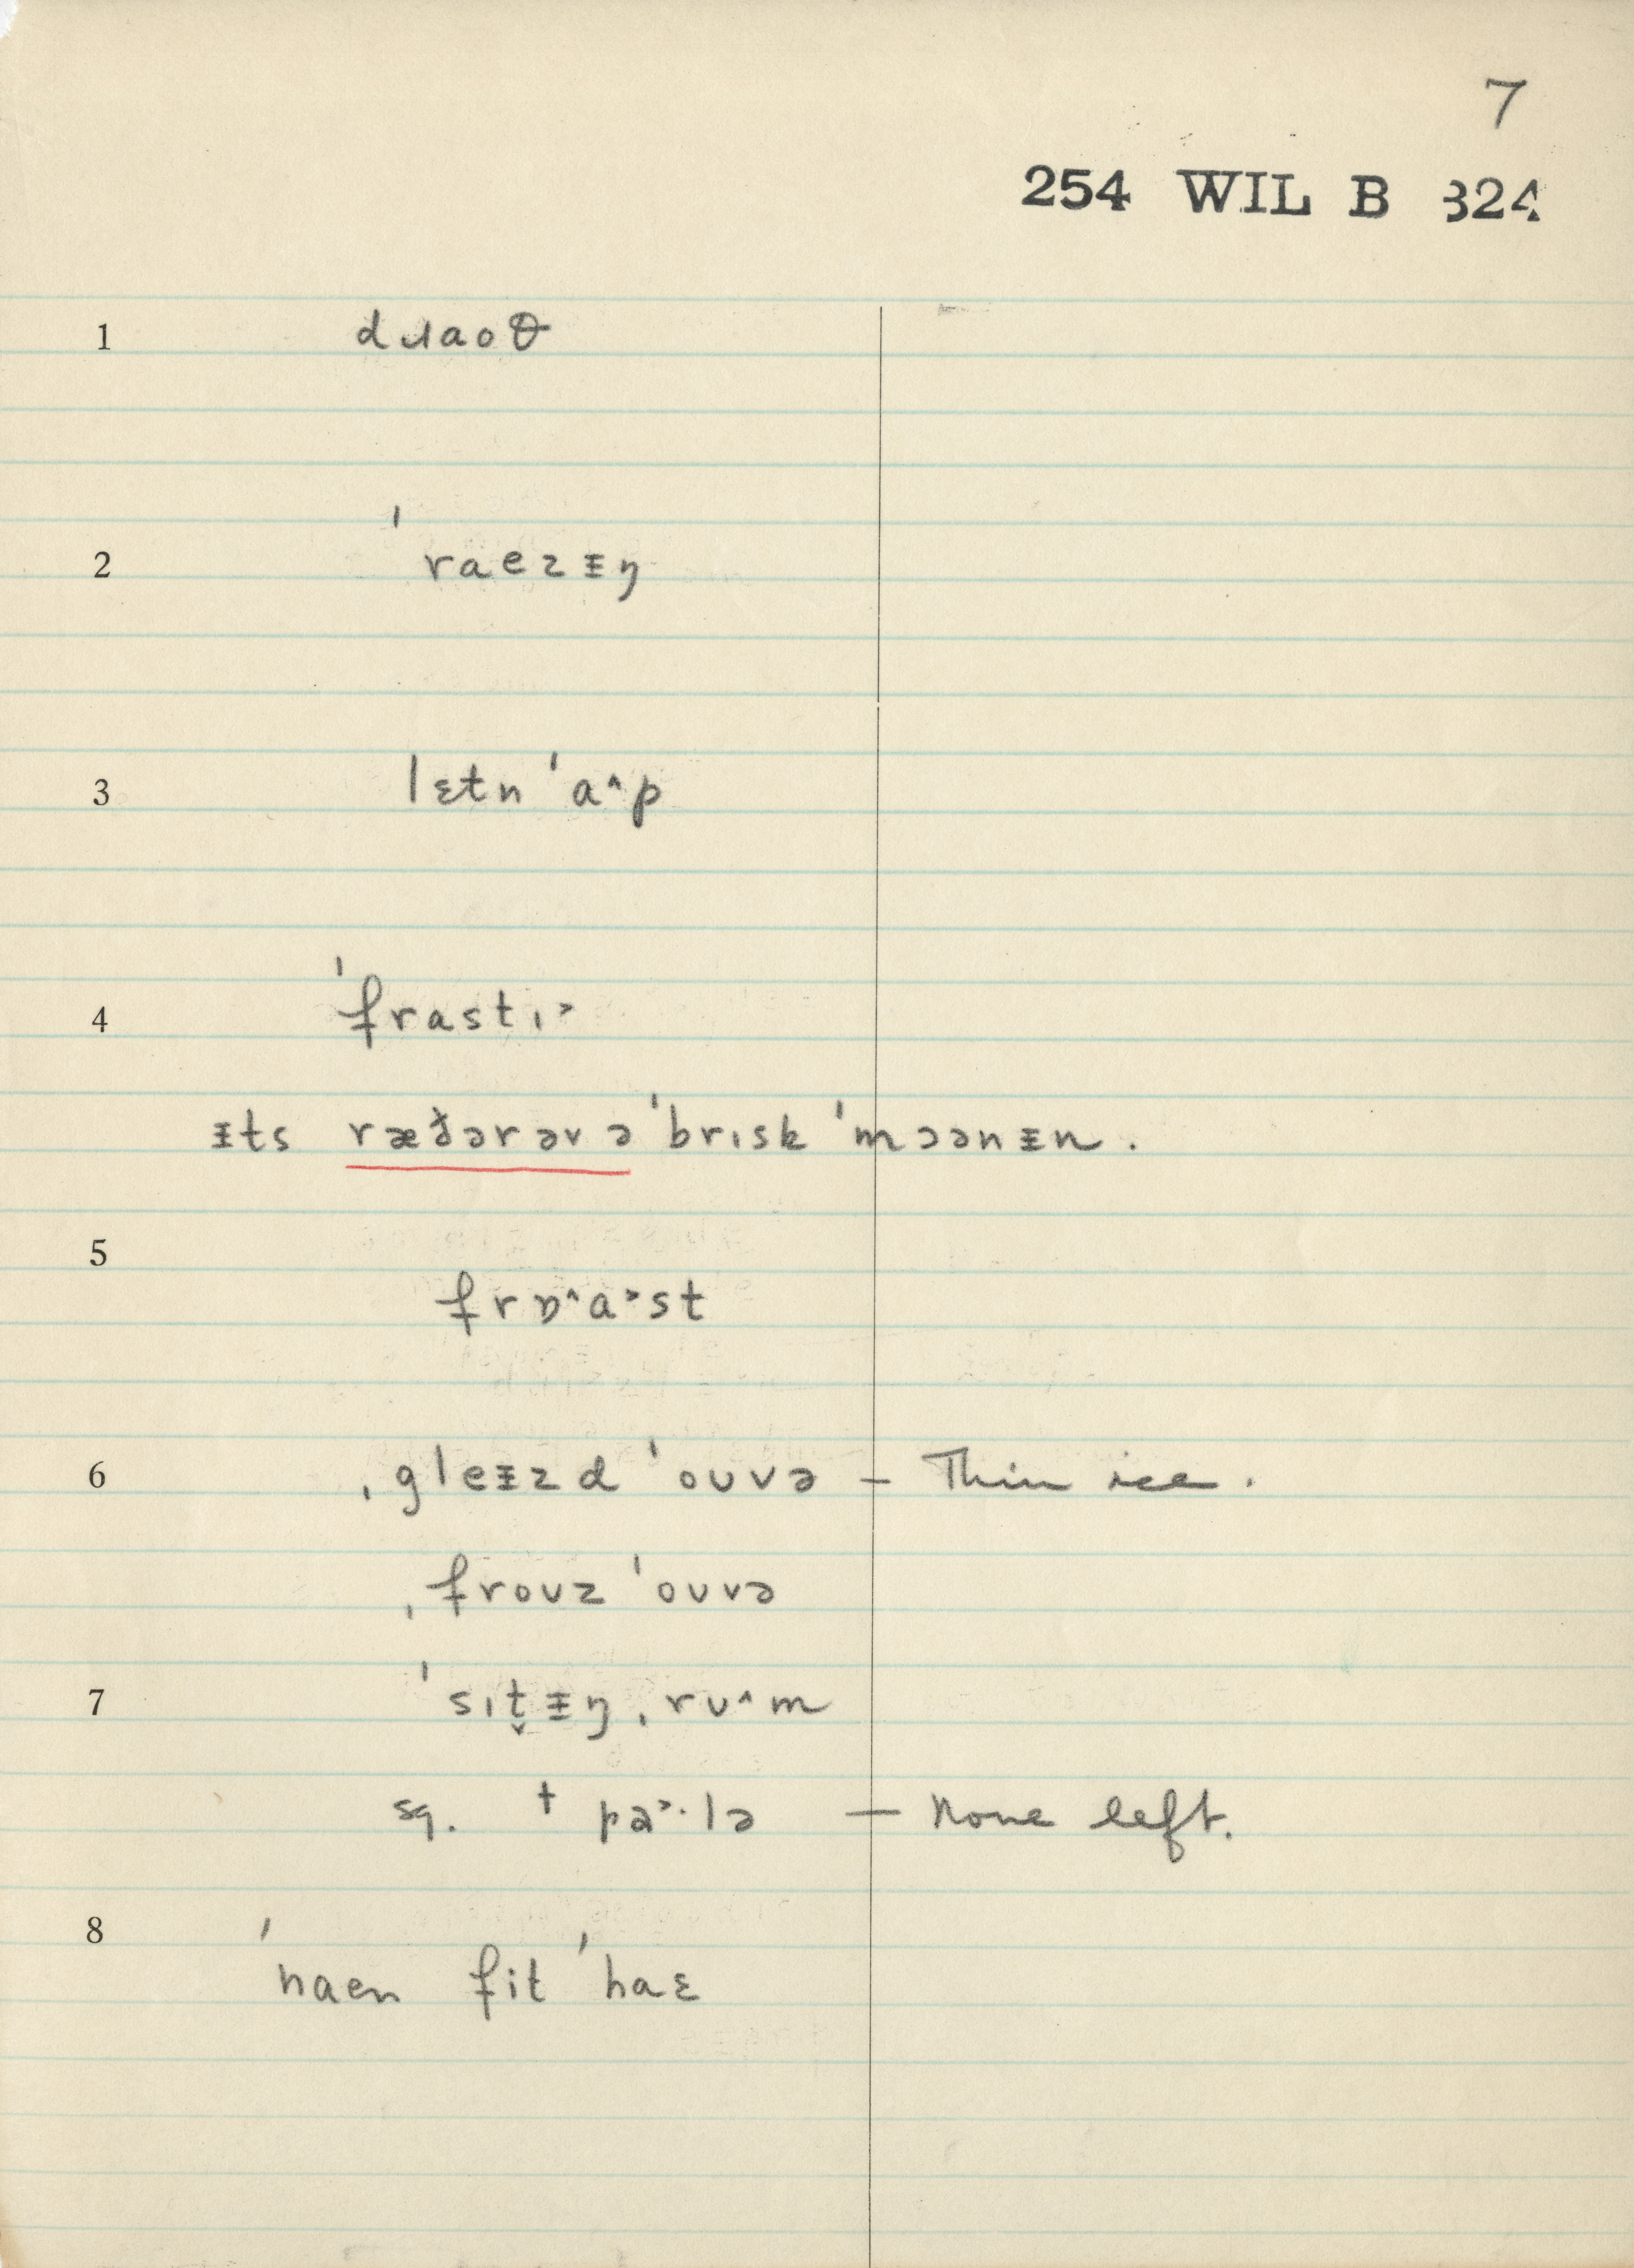 7
254 WIL B 324
1 dɹaoθ
2 ˈraezᵻŋ
3 lɛtn ˈa^p
4 ˈfrastɪ˃
ᵻts ræðərəv ə ˈbrɪsk ˈmɔənᵻn.
5
frɒ^a˃st
6 ˌgleᵻzd ˈoʊvə – Thin ice.
ˌfroʊz ˈoʊvə
7 ˈsɪt̬ᵻŋ ˌrʊ^m
sq. † pa˃·lə – None left.
8 ˈnaen fit ˈhaɛ